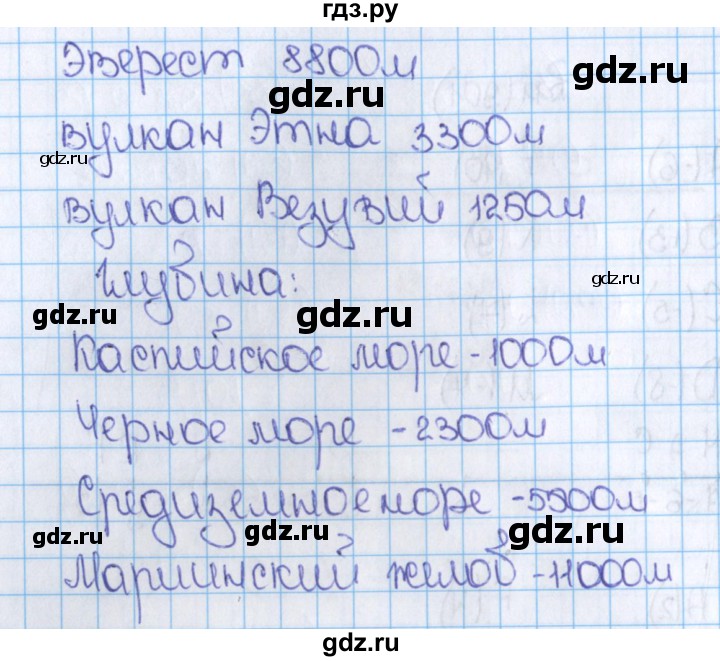 гдз.ру
Эверест 8800м
gdz.ru
вулкан Этна 3300м
gdz.ru
gdz.ru
вулкан Везувий 1250м
Глубина:
gdz.ru
gdz.ru
gdz.ru
Каспийское море -1000м
Черное море -2300м
Средиземное море -5500м
gdz.ru
gdz.ru
gdz.ru
Мариинский желоб -11000м
gdz.ru